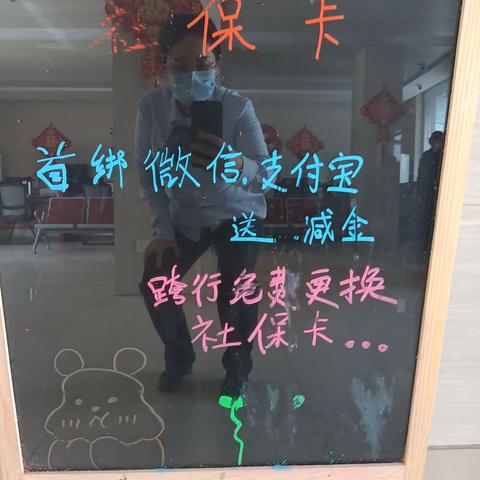 社保卡
首绑微信.支付宝
送..减金
跨行免费更换
社保卡...